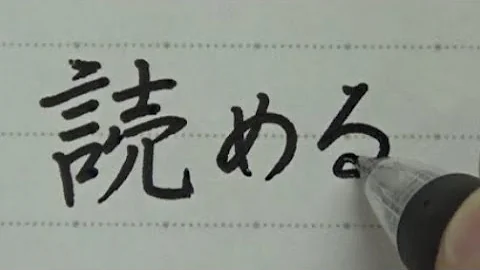 読める